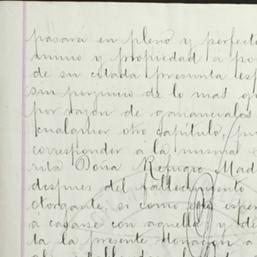 pasará en pleno y perfecto
minio y propiedad a po
de su citada presunta esp
sin perjuicio de lo mas q
por razón de gananciales
cualquier otro capitulo, pu
corresponder a la misma
rita Doña Refugio Mad
despues del fallecimiento
otorgante, si como es
á casarse con aquella; y de
ta la presente donación a